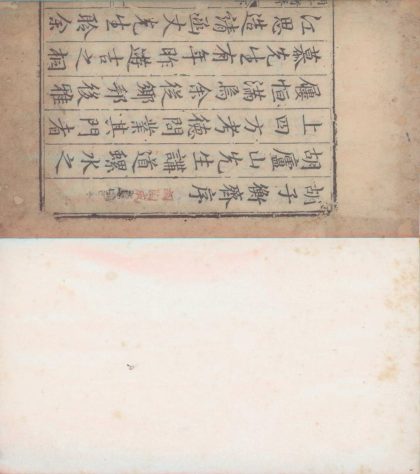 胡子衡齊序
胡廬山先生講道螺水之
上四方考德問業其門者
屨恒滿焉余從鄉郭後雅
慕先生有年昨遊吉之桐
江思造請函丈先生聆余